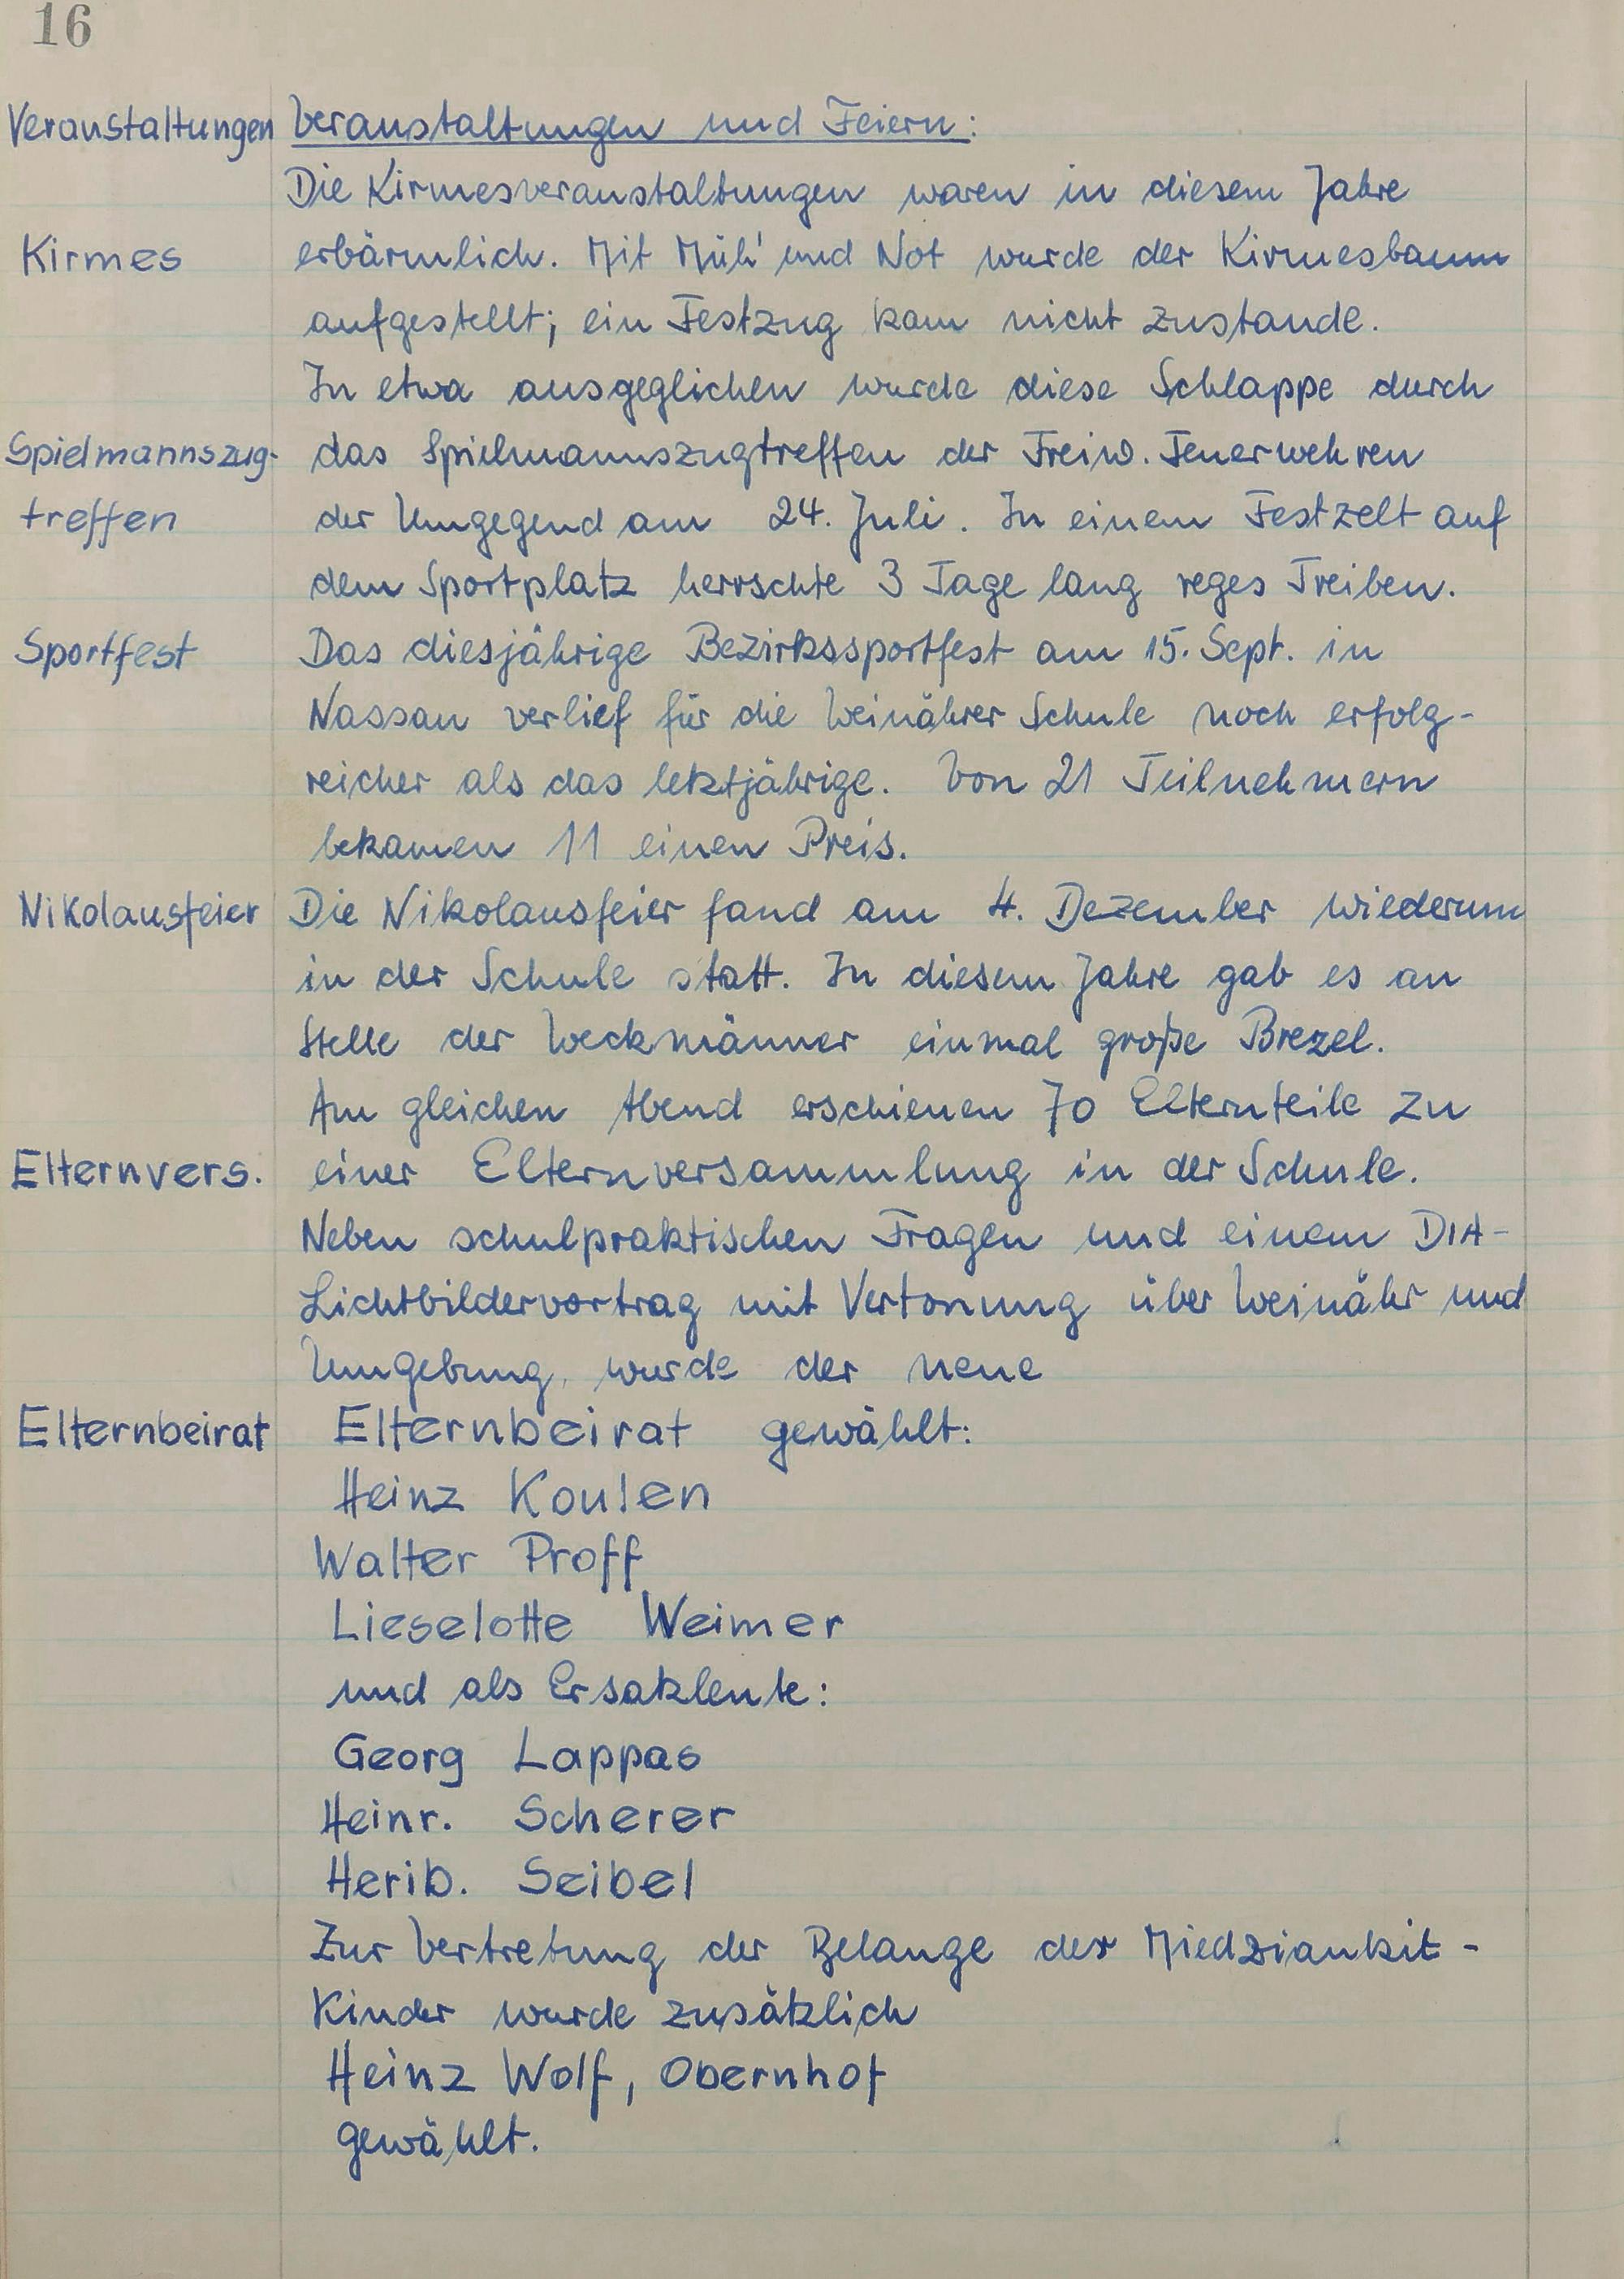 16
Veranstaltungen Veranstaltungen und Feiern:
Die Kirmesveranstaltungen waren in diesem Jahre
Kirmes erbärmlich. Mit Müh' und Not wurde der Kirmesbaum
aufgestellt; ein Festzug kam nicht zustande.
In etwa ausgeglichen wurde diese Schlappe durch
Spielmannszug- das Spielmannszugtreffen der Freiw. Feuerwehren
treffen der Umgegend am 24. Juli. In einem Festzelt auf
dem Sportplatz herrschte 3 Tage lang reges Treiben.
Sportfest Das diesjährige Bezirkssportfest am 15. Sept. in
Nassau verlief für die Weinährer Schule noch erfolg-
reicher als das letztjährige. Von 21 Teilnehmern
bekamen 11 einen Preis.
Nikolausfeier Die Nikolausfeier fand am 4. Dezember wiederum
in der Schule statt. In diesem Jahre gab es an
Stelle der Weckmänner einmal große Brezel.
Am gleichen Abend erschienen 70 Elternteile zu
Elternvers. einer Elternversammlung in der Schule.
Neben schulpraktischen Fragen und einem DIA-
Lichtbildervortrag mit Vertonung über Weinähr und
Umgebung, wurde der neue
Elternbeirat Elternbeirat gewählt:
Heinz Koulen
Walter Proff
Lieselotte Weimer
und als Ersatzleute:
Georg Lappas
Heinr. Scherer
Herib. Seibel
Zur Vertretung der Belange der Miedziankit-
Kinder wurde zusätzlich
Heinz Wolf, Obernhof
gewählt.